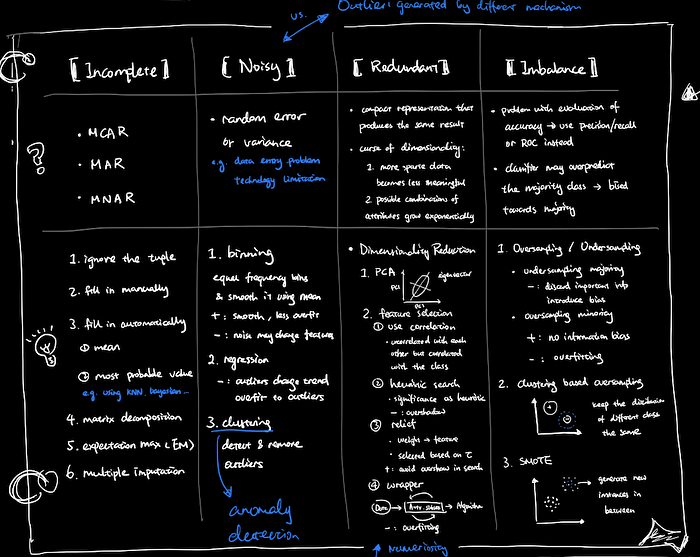 vs.
Outlier: generated by different mechanism
[Incomplete]
[Noisy]
[Redundant]
[Imbalance]
?
• MCAR
• MAR
• MNAR
• random error
or variance
e.g. data entry problem
technology limitation
• compact representation that
produces the same result
• curse of dimensionality:
1. more sparse data
becomes less meaningful
2. possible combinations of
attributes grow exponentially
• problem with evaluation of
accuracy → use precision/recall
or ROC instead
• classifier may overpredict
the majority class → biased
towards majority
1. ignore the tuple
2. fill in manually
3. fill in automatically
① mean
② most probable value
e.g. using KNN, bayesian...
4. matrix decomposition
5. expectation max (EM)
6. multiple imputation
1. binning
equal frequency bins
& smooth it using mean
+: smooth, less overfit
-: noise may change features
2. regression
-: outliers change trend
overfit to outliers
3. clustering
detect & remove
outliers
anomaly
detection
• Dimensionality Reduction
1. PCA
eigenvector
PC1
2. feature selection
① use correlation
• uncorrelated with each
other but correlated
with the class
② heuristic search
• significance as heuristic
-: overshadow
③ relief
• weigh → feature
• selected based on τ
+: avoid overshadow in search
④ wrapper
Data → Attr. subset → Algorithm
-: overfitting
↑ Numerosity
1. Oversampling / Undersampling
• undersampling majority
-: discard important info
introduce bias
• oversampling minority
+: no information bias
-: overfitting
2. clustering based oversampling
keep the distribution
of different class
the same
3. SMOTE
generate new
instances in
between